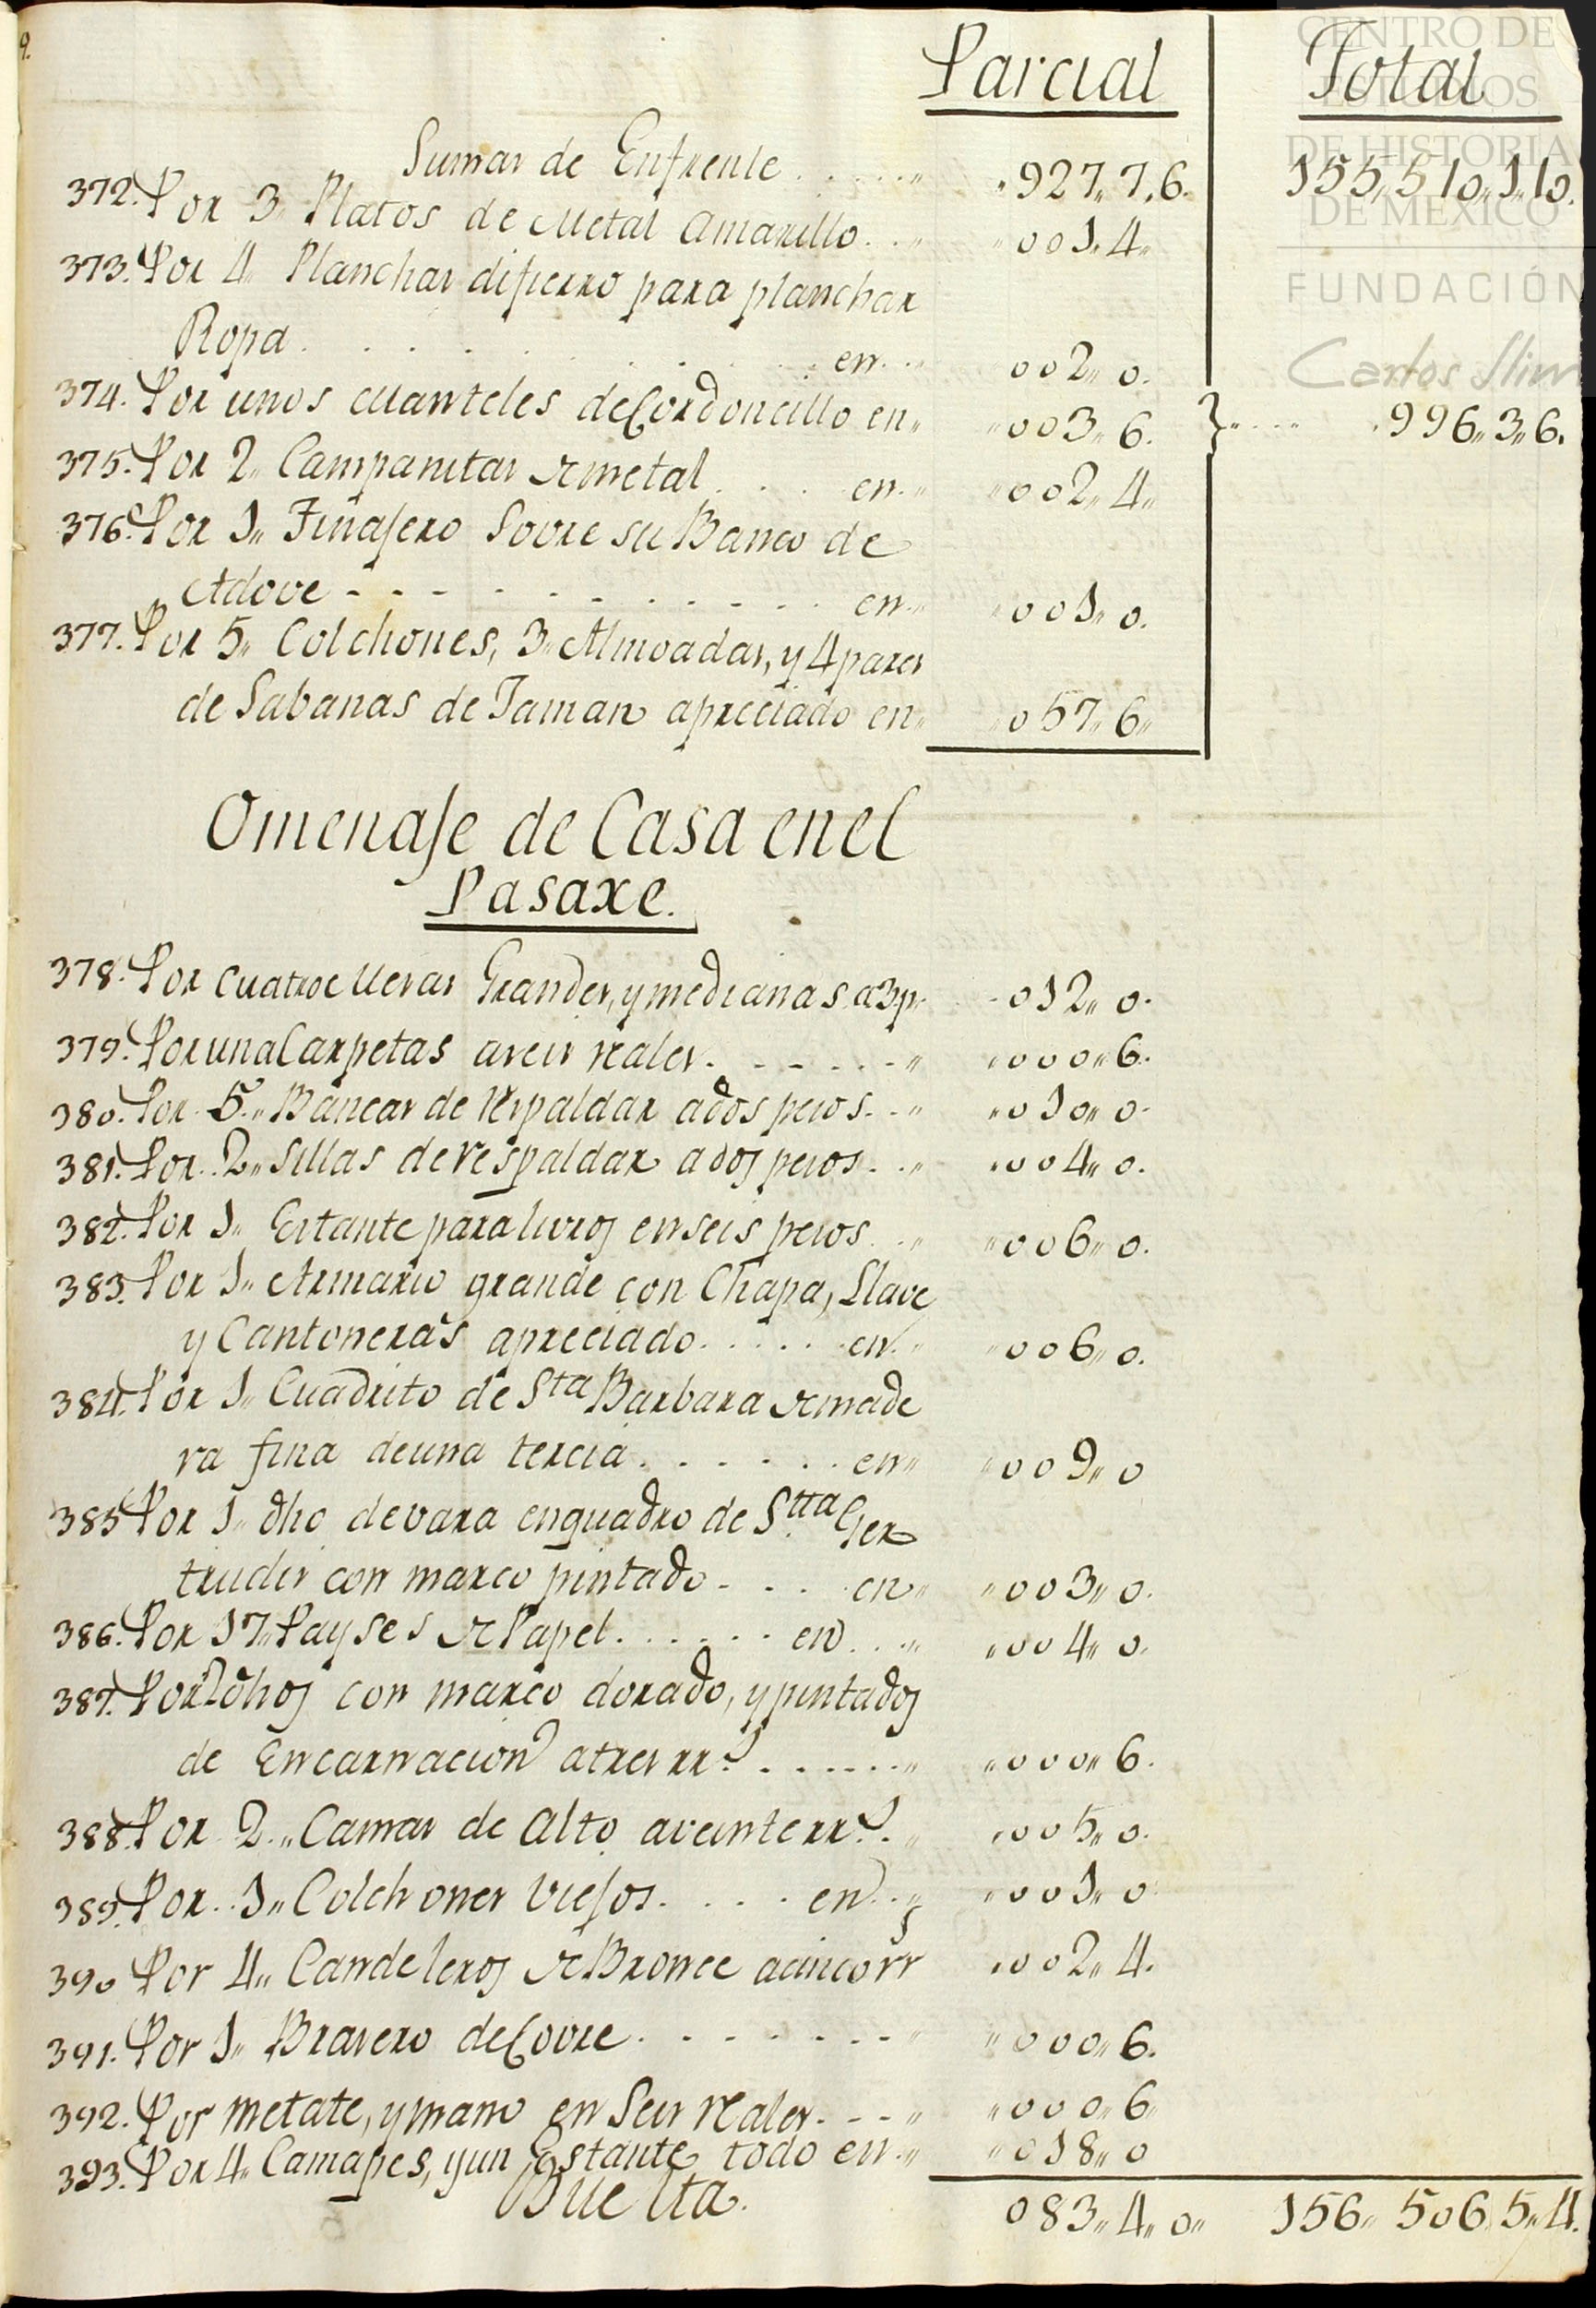 9.
Parcial Total
Sumas de Enfrente . . . . . „ „927„7„6. 155„510„1„10.
372. Por 3„ Platos de Metal Amarillo . . „ „001„4„
373. Por 4„ Planchas difierro para planchar
Ropa . . . . . . . . . . . en . . „ 002„0.
374. Por unos Manteles de Cordoncillo en„ „003„6. } . . . . „996„3„6.
375. Por 2„ Campanitas de metal . . . en . „ „002„4„
376. Por 1„ Tinajero Sovre su Banco de
Adove - - - - - - - - - - en „ „001„0.
377. Por 5„ Colchones, 3„ Almoadas, y 4 pares
de Sabanas de Taman apreciado en„ „057„6„
Omenaje de Casa enel
Pasaxe.
378. Por Cuatro Mesas Grandes, y medianas a3p. -012„0.
379. Por una Carpetas aseis reales . - - . . - „ „000„6.
380. Por 5„ Bancas de respaldar ados pesos . . „ „010„0.
381. Por 2„ Sillas de respaldar ados pesos . . „ „004„0.
382. Por 1„ Estante para livros en seis pesos . . „ „006„0.
383. Por 1„ Armario grande con Chapa, Llave
y Cantoneras apreciado . . . . . en . „ „006„0.
384. Por 1„ Cuadrito de Sta Barbara de made
ra fina deuna tercia . . . . . . en„ „009„0
385 Por 1„ dho devara enquadro de Stta Ger
trudis con marco pintado - . . . en„ „003„0.
386. Por 17„ Payses de Papel . . . . . . en . . „ „004„0.
387. Por 2 dhos con marco dorado, y pintados
de Encarnacion atres rrs . . . . . . „ „000„6.
388. Por 2„ Camas de alto aveinte rrs . „ „005„0.
389. Por . . 1„ Colchones viejos . . . . en . „ „001„0
390 Por 4„ Candeleros de Bronce acinco rr „002„4.
391. Por 1„ Bravero de Covre . . . . . . . „ „000„6.
392. Por metate, y mano en Seis reales . - - „ „000„6„
393. Por 4„ Camapes, y un estante todo en . „ „018„0
Buelta. 083„4„0„ 156„506„5„4.
CENTRO DE
ESTUDIOS
DE HISTORIA
DE MÉXICO
FUNDACIÓN
Carlos Slim